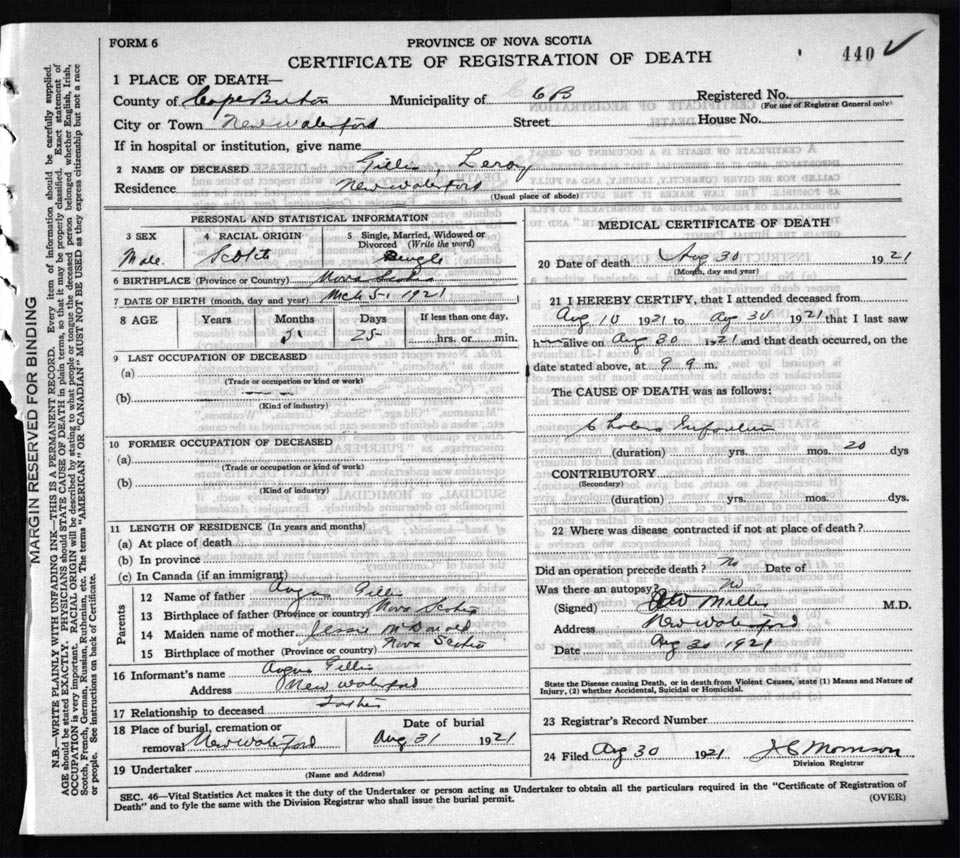 FORM 6
PROVINCE OF NOVA SCOTIA
CERTIFICATE OF REGISTRATION OF DEATH
440
1 PLACE OF DEATH—
County of Cape Breton Municipality of CB Registered No.
(For use of Registrar General only)
City or Town New Waterford Street House No.
If in hospital or institution, give name
2 NAME OF DECEASED Gillis, Leroy
Residence New Waterford
(Usual place of abode)
PERSONAL AND STATISTICAL INFORMATION
3 SEX 4 RACIAL ORIGIN 5 Single, Married, Widowed or Divorced (Write the word)
Male Scotch Single
6 BIRTHPLACE (Province or Country) Nova Scotia
7 DATE OF BIRTH (month, day and year) Mch 5-1921
8 AGE Years Months Days If less than one day,
5 25 hrs. or min.
9 LAST OCCUPATION OF DECEASED
(a)
(Trade or occupation or kind or work)
(b)
(Kind of industry)
10 FORMER OCCUPATION OF DECEASED
(a)
(Trade or occupation or kind of work)
(b)
(Kind of industry)
11 LENGTH OF RESIDENCE (In years and months)
(a) At place of death
(b) In province
(c) In Canada (if an immigrant)
Parents
12 Name of father Angus Gillis
13 Birthplace of father (Province or country) Nova Scotia
14 Maiden name of mother Jessie McDonald
15 Birthplace of mother (Province or country) Nova Scotia
16 Informant's name Angus Gillis
Address New Waterford
17 Relationship to deceased Father
18 Place of burial, cremation or removal New Waterford
Date of burial
Aug 31 1921
19 Undertaker
(Name and Address)
MEDICAL CERTIFICATE OF DEATH
20 Date of death Aug 30 1921
(Month, day and year)
21 I HEREBY CERTIFY, that I attended deceased from
Aug 10 1921 to Aug 30 1921 that I last saw
h alive on Aug 30 1921 and that death occurred, on the
date stated above, at 9 m.
The CAUSE OF DEATH was as follows:
Cholera Infantum
(duration) yrs. mos. 20 dys
CONTRIBUTORY
(Secondary)
(duration) yrs. mos. dys.
22 Where was disease contracted if not at place of death?
Did an operation precede death? No Date of
Was there an autopsy? No
(Signed) Miller M.D.
Address New Waterford
Date Aug 30 1921
State the Disease causing Death, or in death from Violent Causes, state (1) Means and Nature of
Injury, (2) whether Accidental, Suicidal or Homicidal.
23 Registrar's Record Number
24 Filed Aug 30 1921 J C Morrison
Division Registrar
SEC. 46—Vital Statistics Act makes it the duty of the Undertaker or person acting as Undertaker to obtain all the particulars required in the "Certificate of Registration of
Death" and to fyle the same with the Division Registrar who shall issue the burial permit.
(OVER)
MARGIN RESERVED FOR BINDING
N.B.—WRITE PLAINLY WITH UNFADING INK—THIS IS A PERMANENT RECORD. Every item of information should be carefully supplied.
AGE should be stated EXACTLY. PHYSICIANS should STATE CAUSE OF DEATH in plain terms, so that it may be properly classified. Exact statement of
OCCUPATION is very important. RACIAL ORIGIN will be described by stating to what people or tongue the deceased person belonged whether English, Irish,
Scotch, French, German, Russian, Ruthenian, etc. The terms "AMERICAN" OR "CANADIAN" MUST NOT BE USED as they express citizenship but not a race
or people. See instructions on back of Certificate.